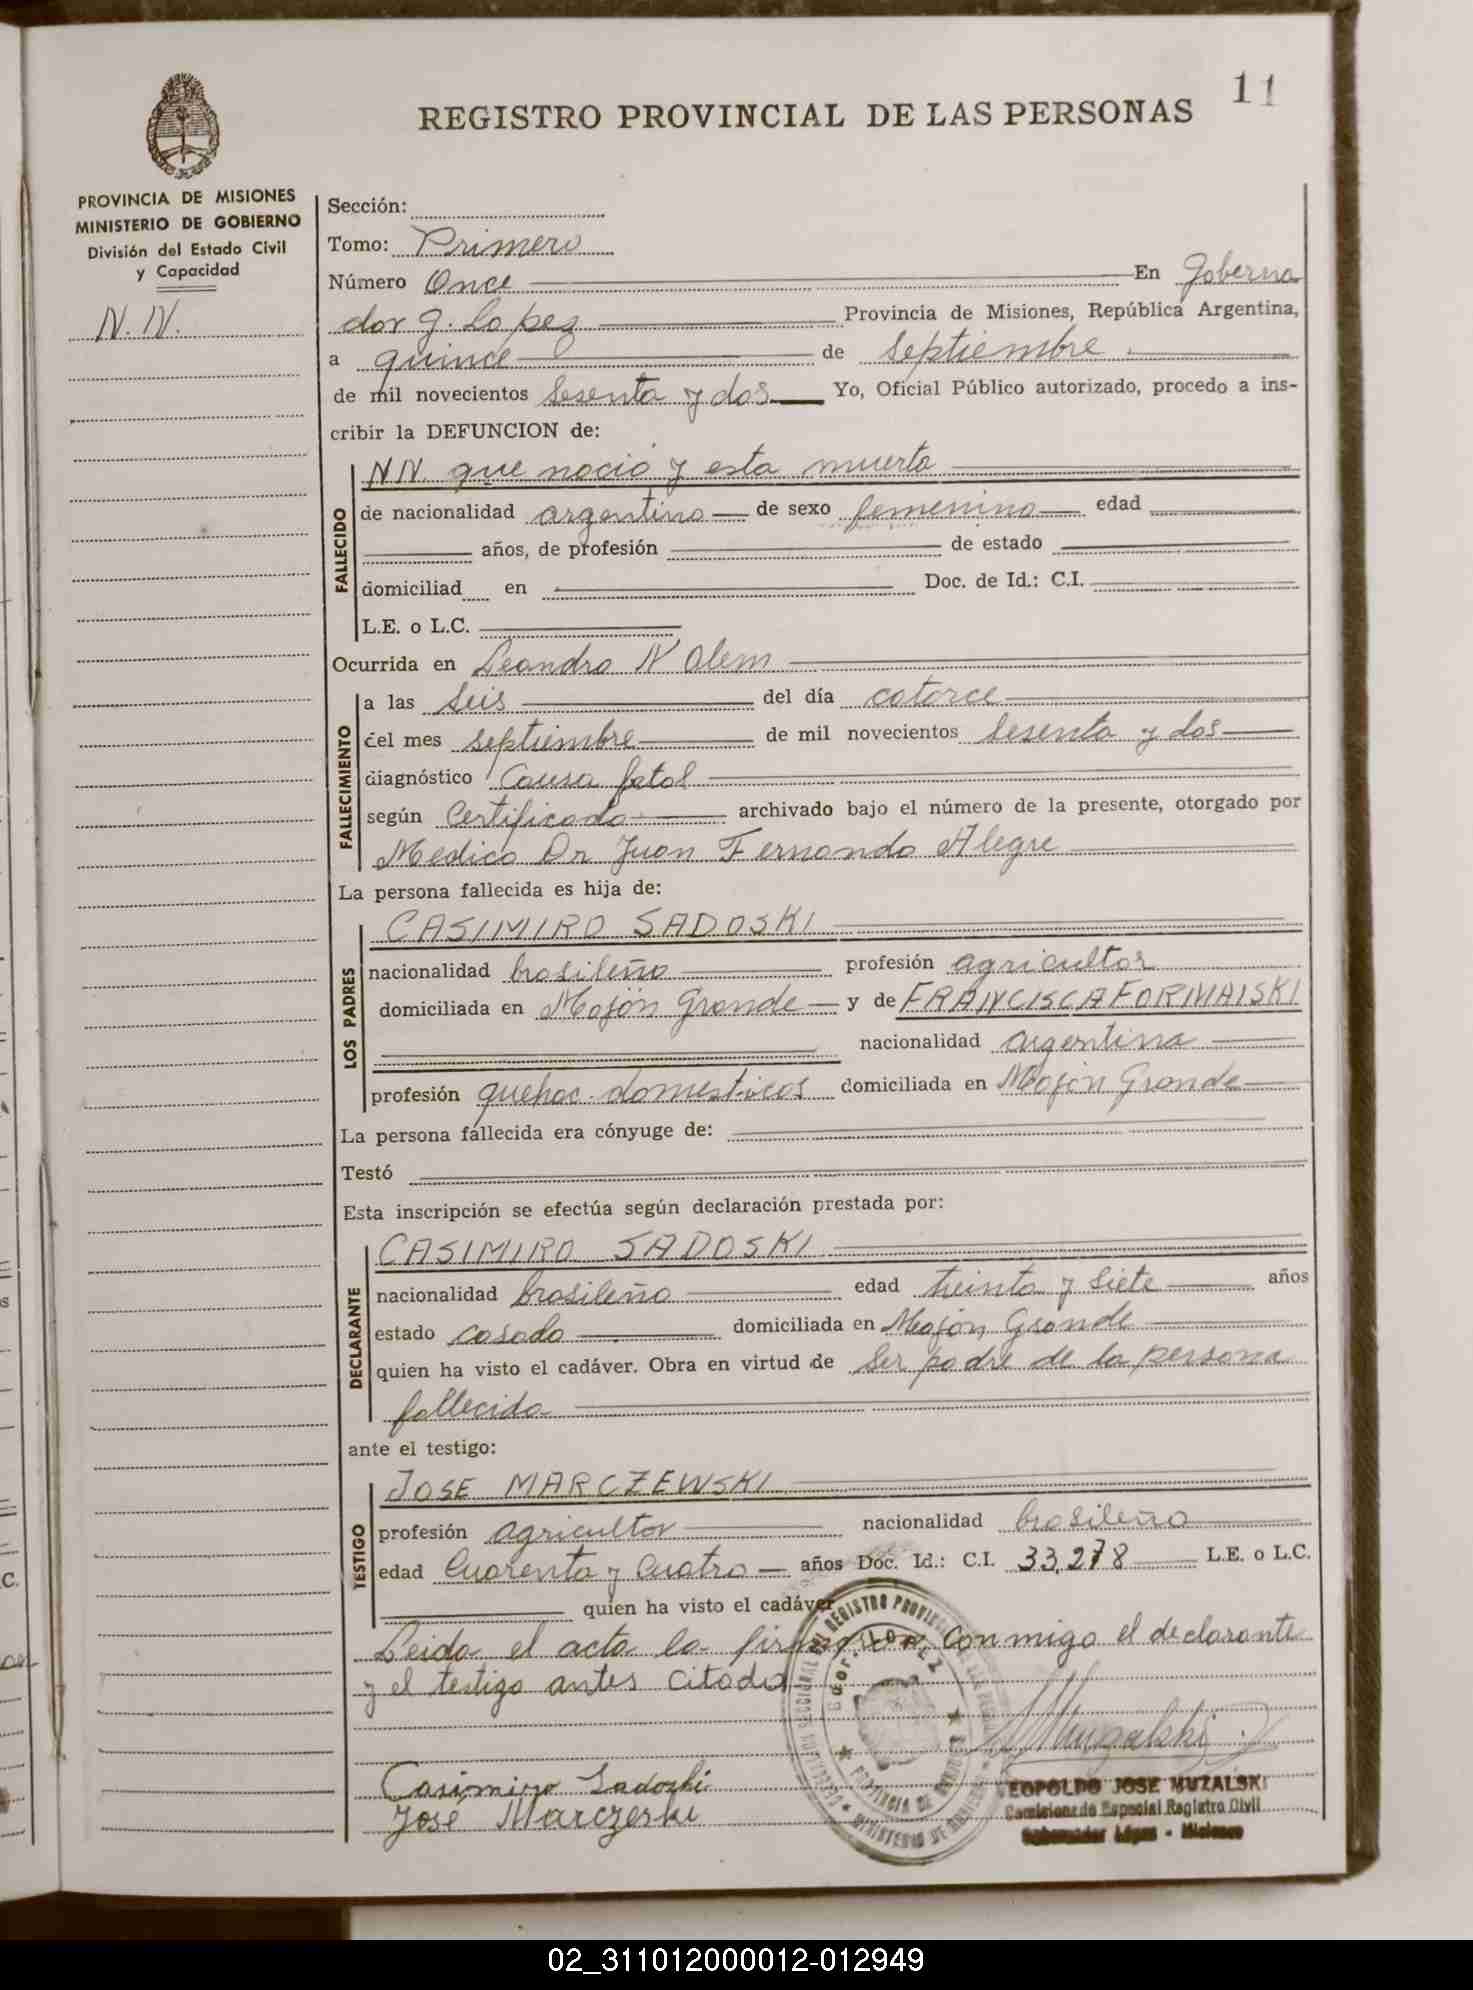 11
REGISTRO PROVINCIAL DE LAS PERSONAS
PROVINCIA DE MISIONES
MINISTERIO DE GOBIERNO
División del Estado Civil
y Capacidad
N. N.
Sección:
Tomo: Primero
Número Once En Goberna
dor G. Lopez Provincia de Misiones, República Argentina,
a quince de septiembre
de mil novecientos sesenta y dos Yo, Oficial Público autorizado, procedo a ins-
cribir la DEFUNCION de:
NN. que nacio y esta muerta
FALLECIDO
de nacionalidad argentina de sexo femenino edad
años, de profesión de estado
domiciliad en Doc. de Id.: C.I.
L.E. o L.C.
Ocurrida en Leandro N Alem
FALLECIMIENTO
a las seis del día catorce
del mes septiembre de mil novecientos sesenta y dos
diagnóstico Causa fatal
según Certificado archivado bajo el número de la presente, otorgado por
Medico Dr Juan Fernando Alegre
La persona fallecida es hija de:
CASIMIRO SADOSKI
LOS PADRES
nacionalidad brasileño profesión agricultor
domiciliada en Mojón Grande y de FRANCISCA FORMAISKI
nacionalidad argentina
profesión quehac. domesticos domiciliada en Mojón Grande
La persona fallecida era cónyuge de:
Testó
Esta inscripción se efectúa según declaración prestada por:
CASIMIRO SADOSKI
DECLARANTE
nacionalidad brasileño edad treinta y siete años
estado casado domiciliada en Mojón Grande
quien ha visto el cadáver. Obra en virtud de ser padre de la persona
fallecida
ante el testigo:
JOSE MARCZEWSKI
TESTIGO
profesión agricultor nacionalidad brasileño
edad Cuarenta y cuatro años Doc. Id.: C.I. 33,278 L.E. o L.C.
quien ha visto el cadáver
Leida el acta la firman conmigo el declarante
y el testigo antes citado
Casimiro Sadoski
José Marczeski
LEOPOLDO JOSE MUZALSKI
Comisionado Especial Registro Civil
Gobernador López - Misiones
02_311012000012-012949